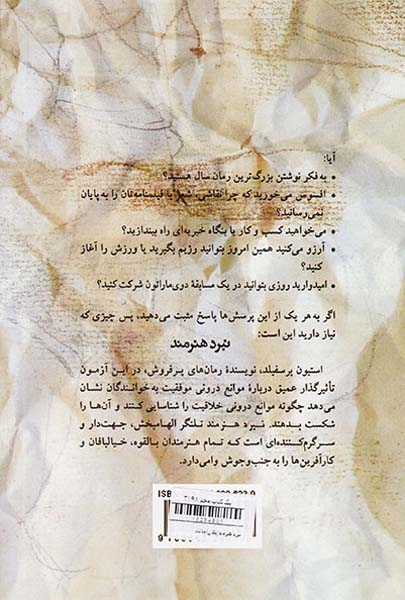 آیا:
• به فکر نوشتن بزرگ‌ترین رمان سال هستید؟
• افسوس می‌خورید که چرا نقاشی، شعر یا فیلمنامه‌تان را به پایان
نمی‌رسانید؟
• می‌خواهید کسب و کار یا بنگاه خیریه‌ای راه بیندازید؟
• آرزو می‌کنید همین امروز بتوانید رژیم بگیرید یا ورزش را آغاز
کنید؟
• امیدوارید روزی بتوانید در یک مسابقهٔ دوی ماراتون شرکت کنید؟
اگر به هر یک از این پرسش‌ها پاسخ مثبت می‌دهید، پس چیزی که
نیاز دارید این است:
نبرد هنرمند
استیون پرسفیلد، نویسندهٔ رمان‌های پرفروش، در این آزمون
تأثیرگذار عمیق دربارهٔ موانع درونی موفقیت به خوانندگان نشان
می‌دهد چگونه موانع درونی خلاقیت را شناسایی کنند و آن‌ها را
شکست بدهند. نبرد هنرمند تلنگر الهامبخش، جهت‌دار و
سرگرم‌کننده‌ای است که تمام هنرمندان بالقوه، خیالبافان و
کارآفرین‌ها را به جنب‌وجوش وامی‌دارد.
ISB